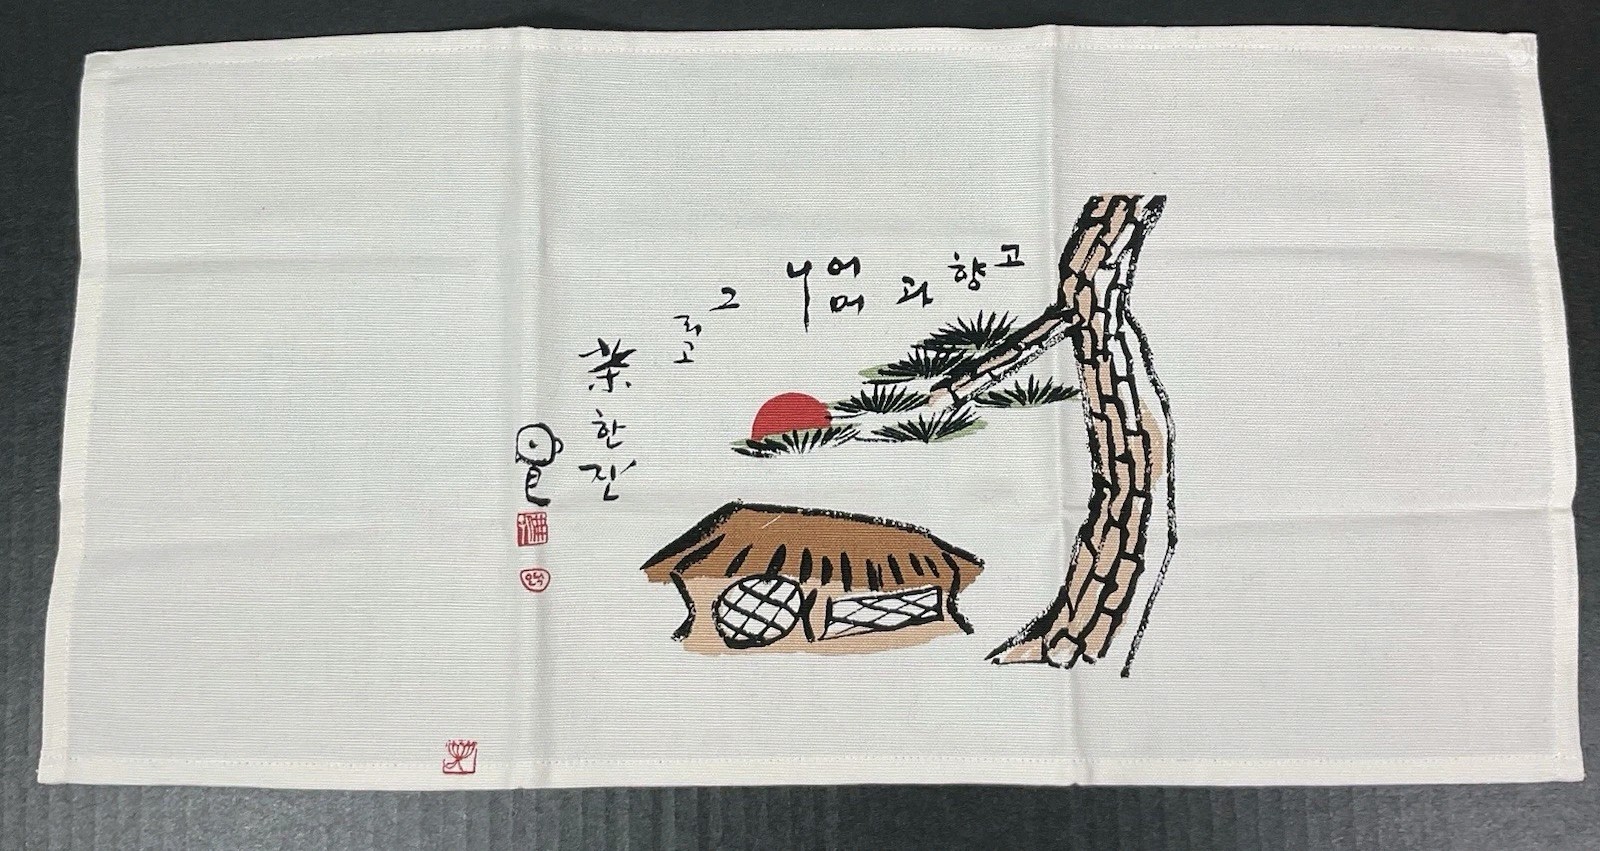 고향과
어머니
그리고
茶 한 잔